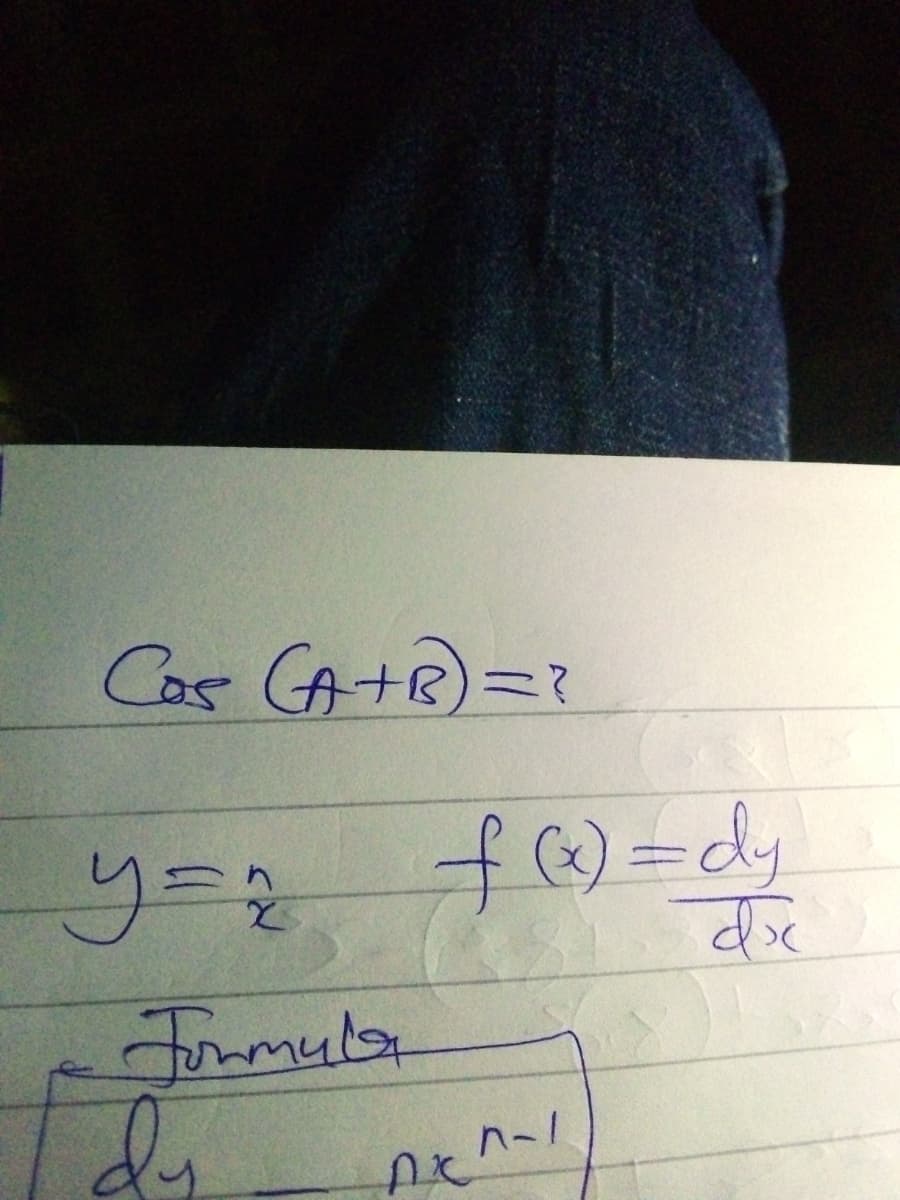 Cos (A+B)=?
y=x^n f(x)=dy/dx
Formula
dy = nx^n-1